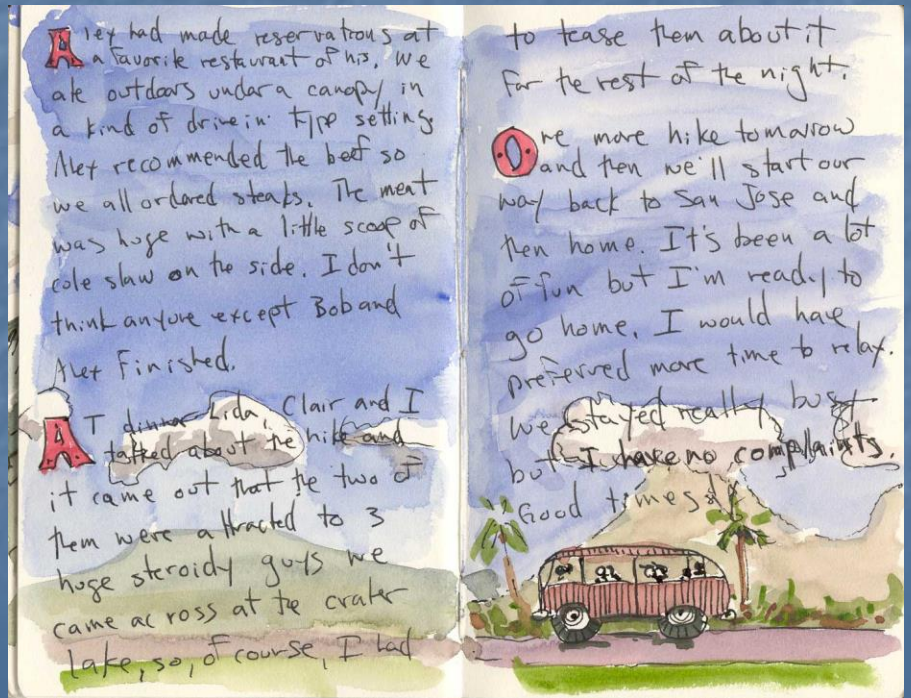 Alex had made reservations at
a favorite restaurant of his. We
ate outdoors under a canopy in
a kind of drive in type setting
Alex recommended the beef so
we all ordared steaks. The meat
was huge with a little scoop of
cole slaw on the side. I don't
think anyone except Bob and
Alex Finished.
AT dinner Lida, Clair and I
talked about the hike and
it came out that the two of
them were attracted to 3
huge steroidy guys we
came across at the crater
lake, so, of course, I had
to tease them about it
for the rest of the night.
One more hike tomarow
and then we'll start our
way back to San Jose and
then home. It's been a lot
of fun but I'm ready to
go home. I would have
preferred more time to relax.
We stayed really busy
but I have no complaints.
Good times